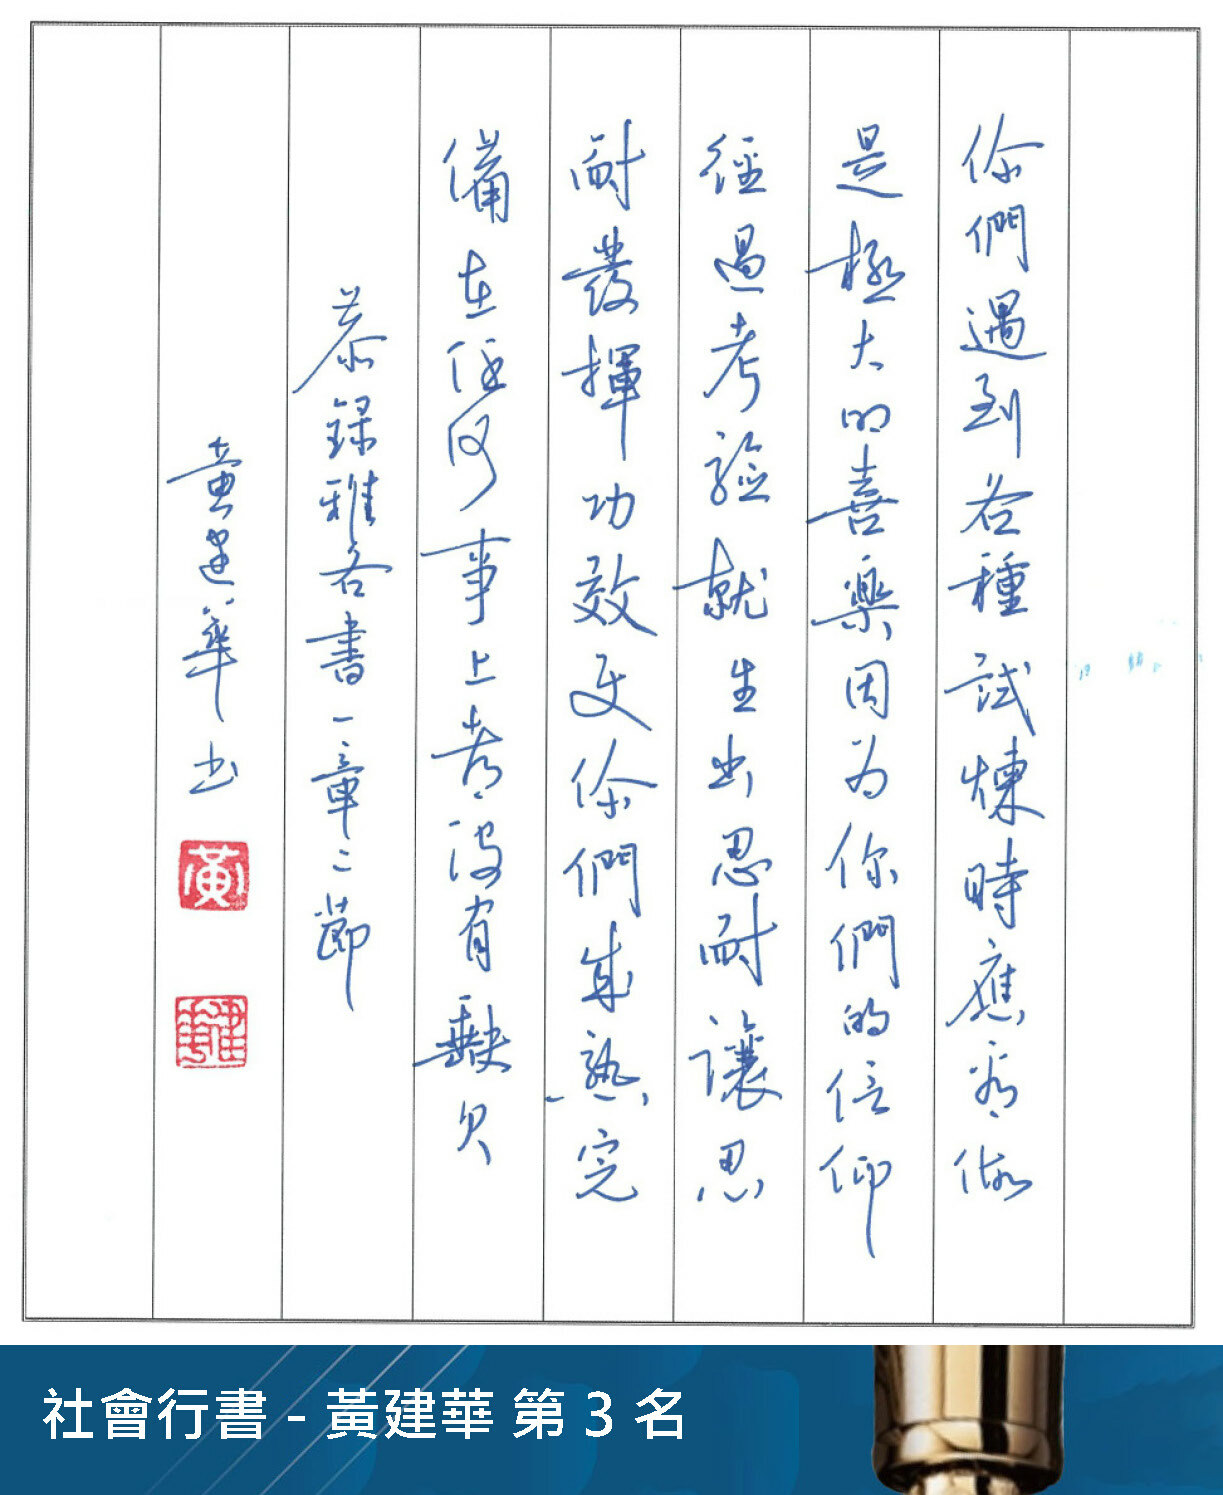 你們遇到各種試煉時應看做
是極大的喜樂因为你們的信仰
經過考驗就生出忍耐讓忍
耐發揮功效使你們成熟完
備在任何事上都没有缺欠
恭録雅各書一章二節
黃建華书
黃
社會行書 - 黃建華 第 3 名